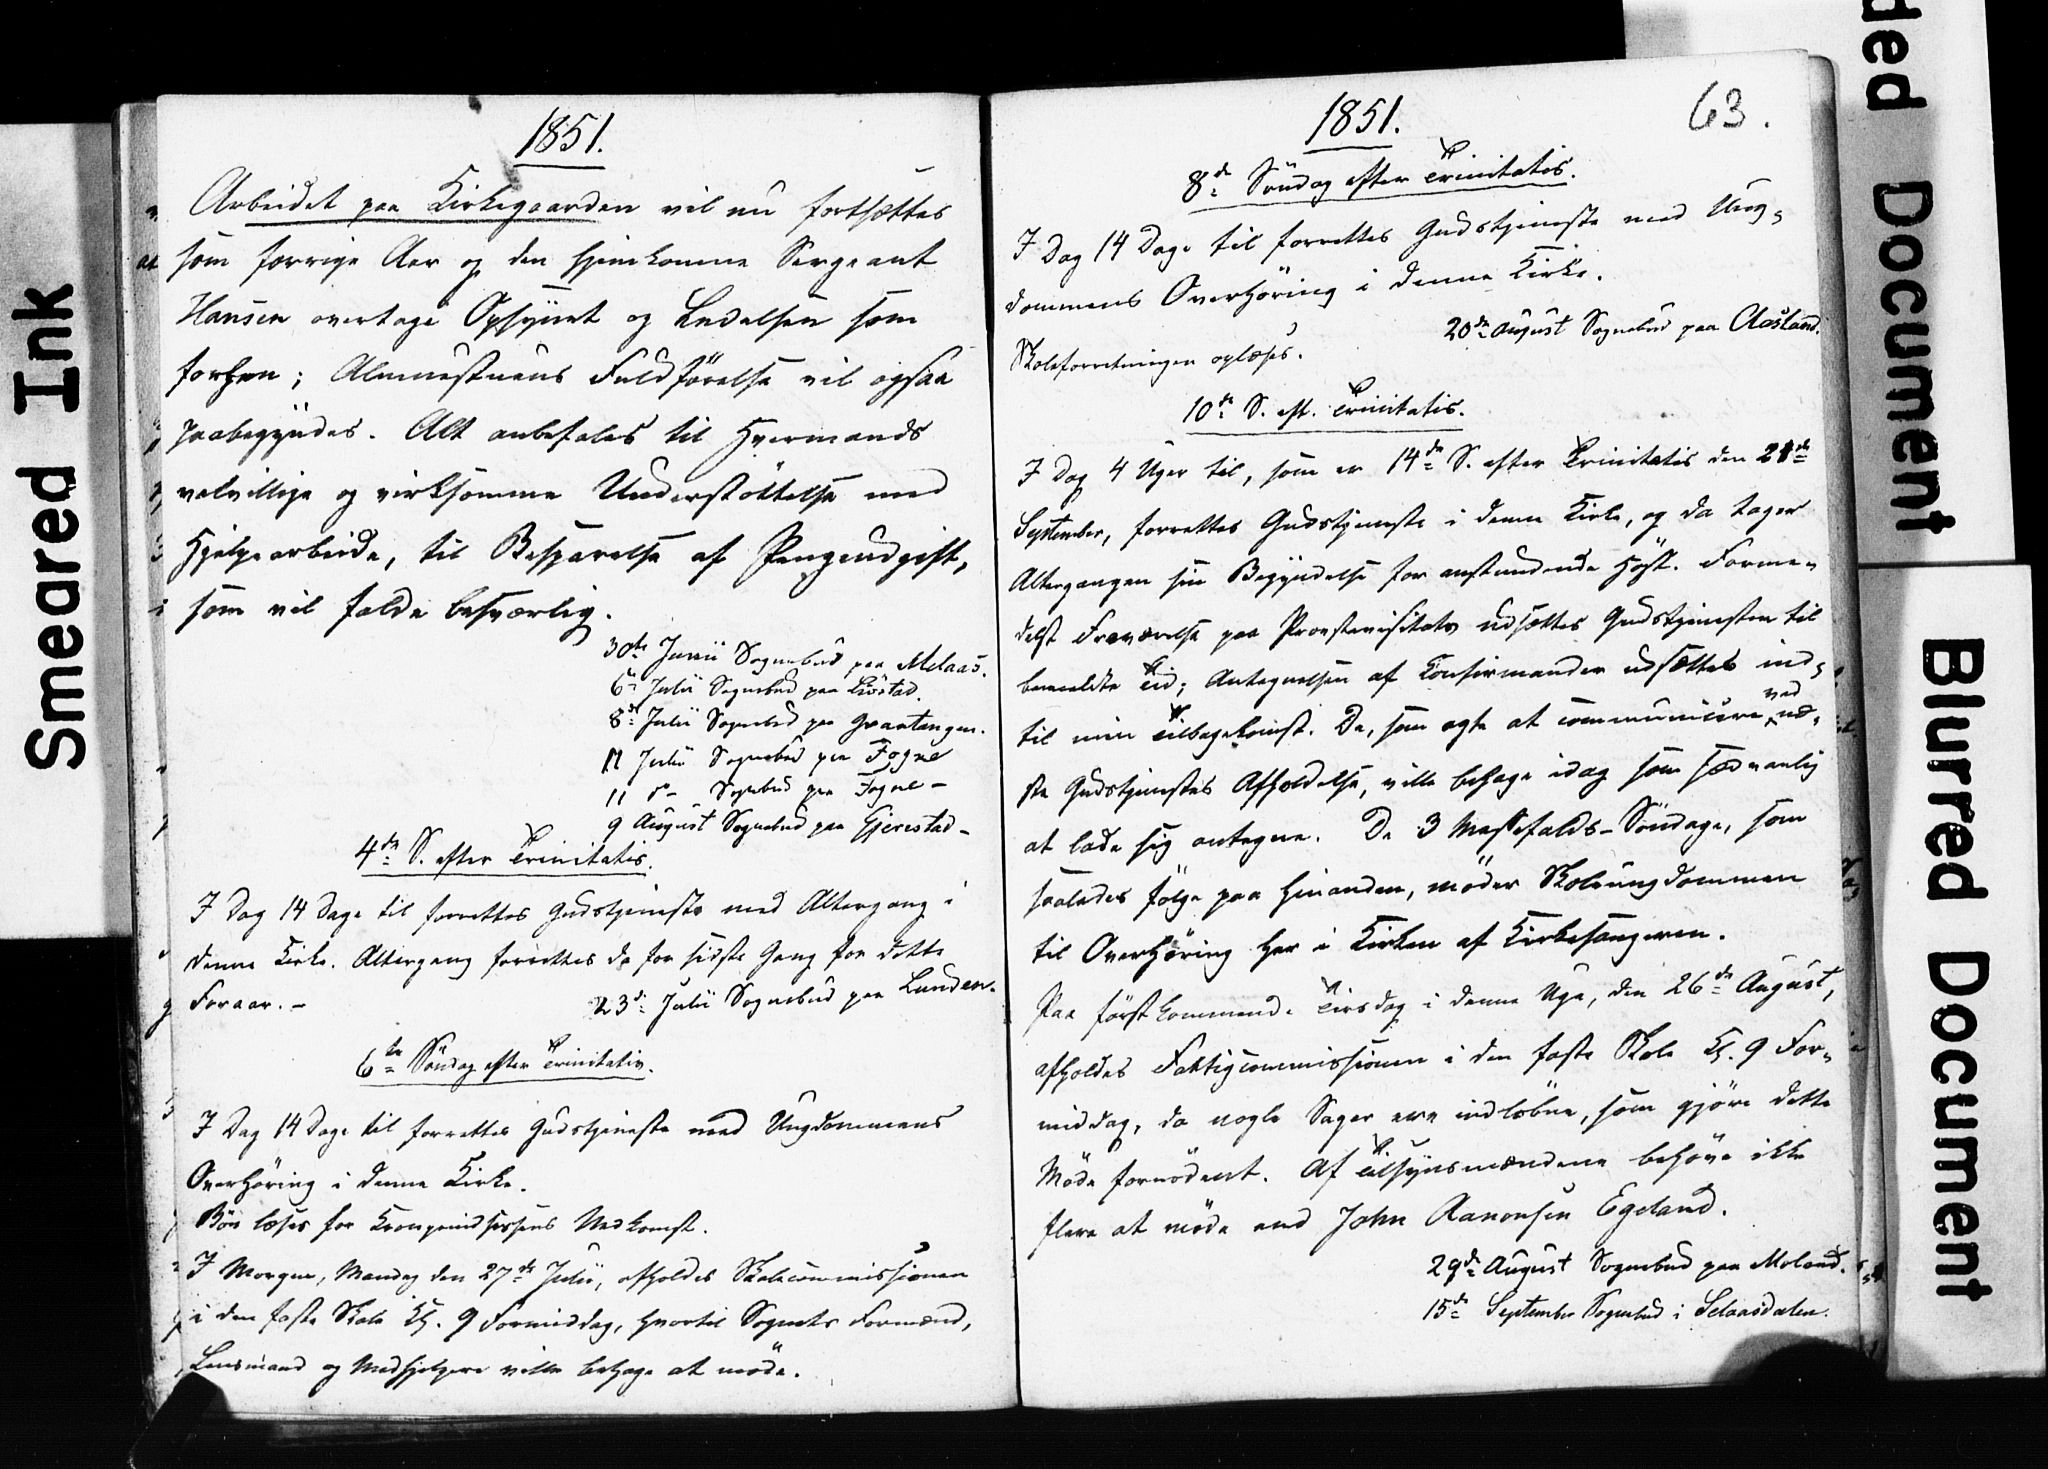 1851.
Arbeidet paa Kirkegaarden vil nu fortsættes
som forrige Aar og den hjemkomne Sergeant
Hansen overtage Opsynet og Ledelsen som
forhen; Almuestuens Fuldførelse vil ogsaa
paabegyndes. Alt anbefales til Hvermands
velvillige og virksomme Understöttelse med
Hjelpearbeide, til Besparelse af Pengeudgift,
som vil falde besværlig.
30te Junii Sognebud paa Melaas.
6te Julii Sognebud paa Livstad.
8de Julii Sognebud paa Gvartangen.
11 Julii Sognebud paa Fogne
11 do - Sognebud paa Fogne -
9 August Sognebud paa Gjerestad -
4de S. efter Trinitatis.
I Dag 14 Dage til forrettes Gudstjeneste med Altergang i
denne Kirke. Altergang forrettes da for sidste Gang for dette
Foraar. -
23de Julii Sognebud paa Lunden.
6te Söndag efter Trinitatis.
I Dag 14 Dage til forrettes Gudstjeneste med Ungdommens
Overhöring i denne Kirke.
Bön læses for Kronprindsessens Nedkomst.
I Morgen, Mandag den 27de Julii, afholdes Skolecommissionen
i den faste Skole Kl. 9 Formiddag, hvortil Sognets Formænd,
Lensmand og Medhjelpere ville behage at möde.
1851.
63.
8de Söndag efter Trinitatis.
I Dag 14 Dage til forrettes Gudstjeneste med Ung-
dommens Overhöring i denne Kirke.
20de August Sognebud paa Aasland.
Skoleforretningen oplæses.
10de S. eft. Trinitatis.
I Dag 4 Uger til, som er 14de S. efter Trinitatis den 21de
September, forrettes Gudstjeneste i denne Kirke, og da tager
Altergangen sin Begyndelse for anstundende Höst. Forme-
delst Fraværelse paa Provstevisitats udsættes Gudstjenesten til
bemeldte Tid; Antegnelsen af Konfirmander udsættes ind-
til min Tilbagekomst. De, som agte at communicere ved næ-
ste Gudstjenestes Afholdelse, ville behage idag som sædvanlig
at lade sig antegne. De 3 Messefalds-Söndage, som
saaledes fölge paa hinanden, möder Skoleungdommen
til Overhöring her i Kirken af Kirkesangeren.
Paa förstkommende Tirsdag i denne Uge, den 26de August,
afholdes Fattigcommissionen i den faste Skole Kl. 9 For-
middag, da nogle Sager ere indlöbne, som gjöre dette
Möde fornödent. Af Tilsynsmændene behöve ikke
flere at möde end John Aanonsen Egeland.
29de August Sognebud paa Moland.
15de September Sognebud i Selaasdalen.
Smeared Ink
ded Document
Blurred Document